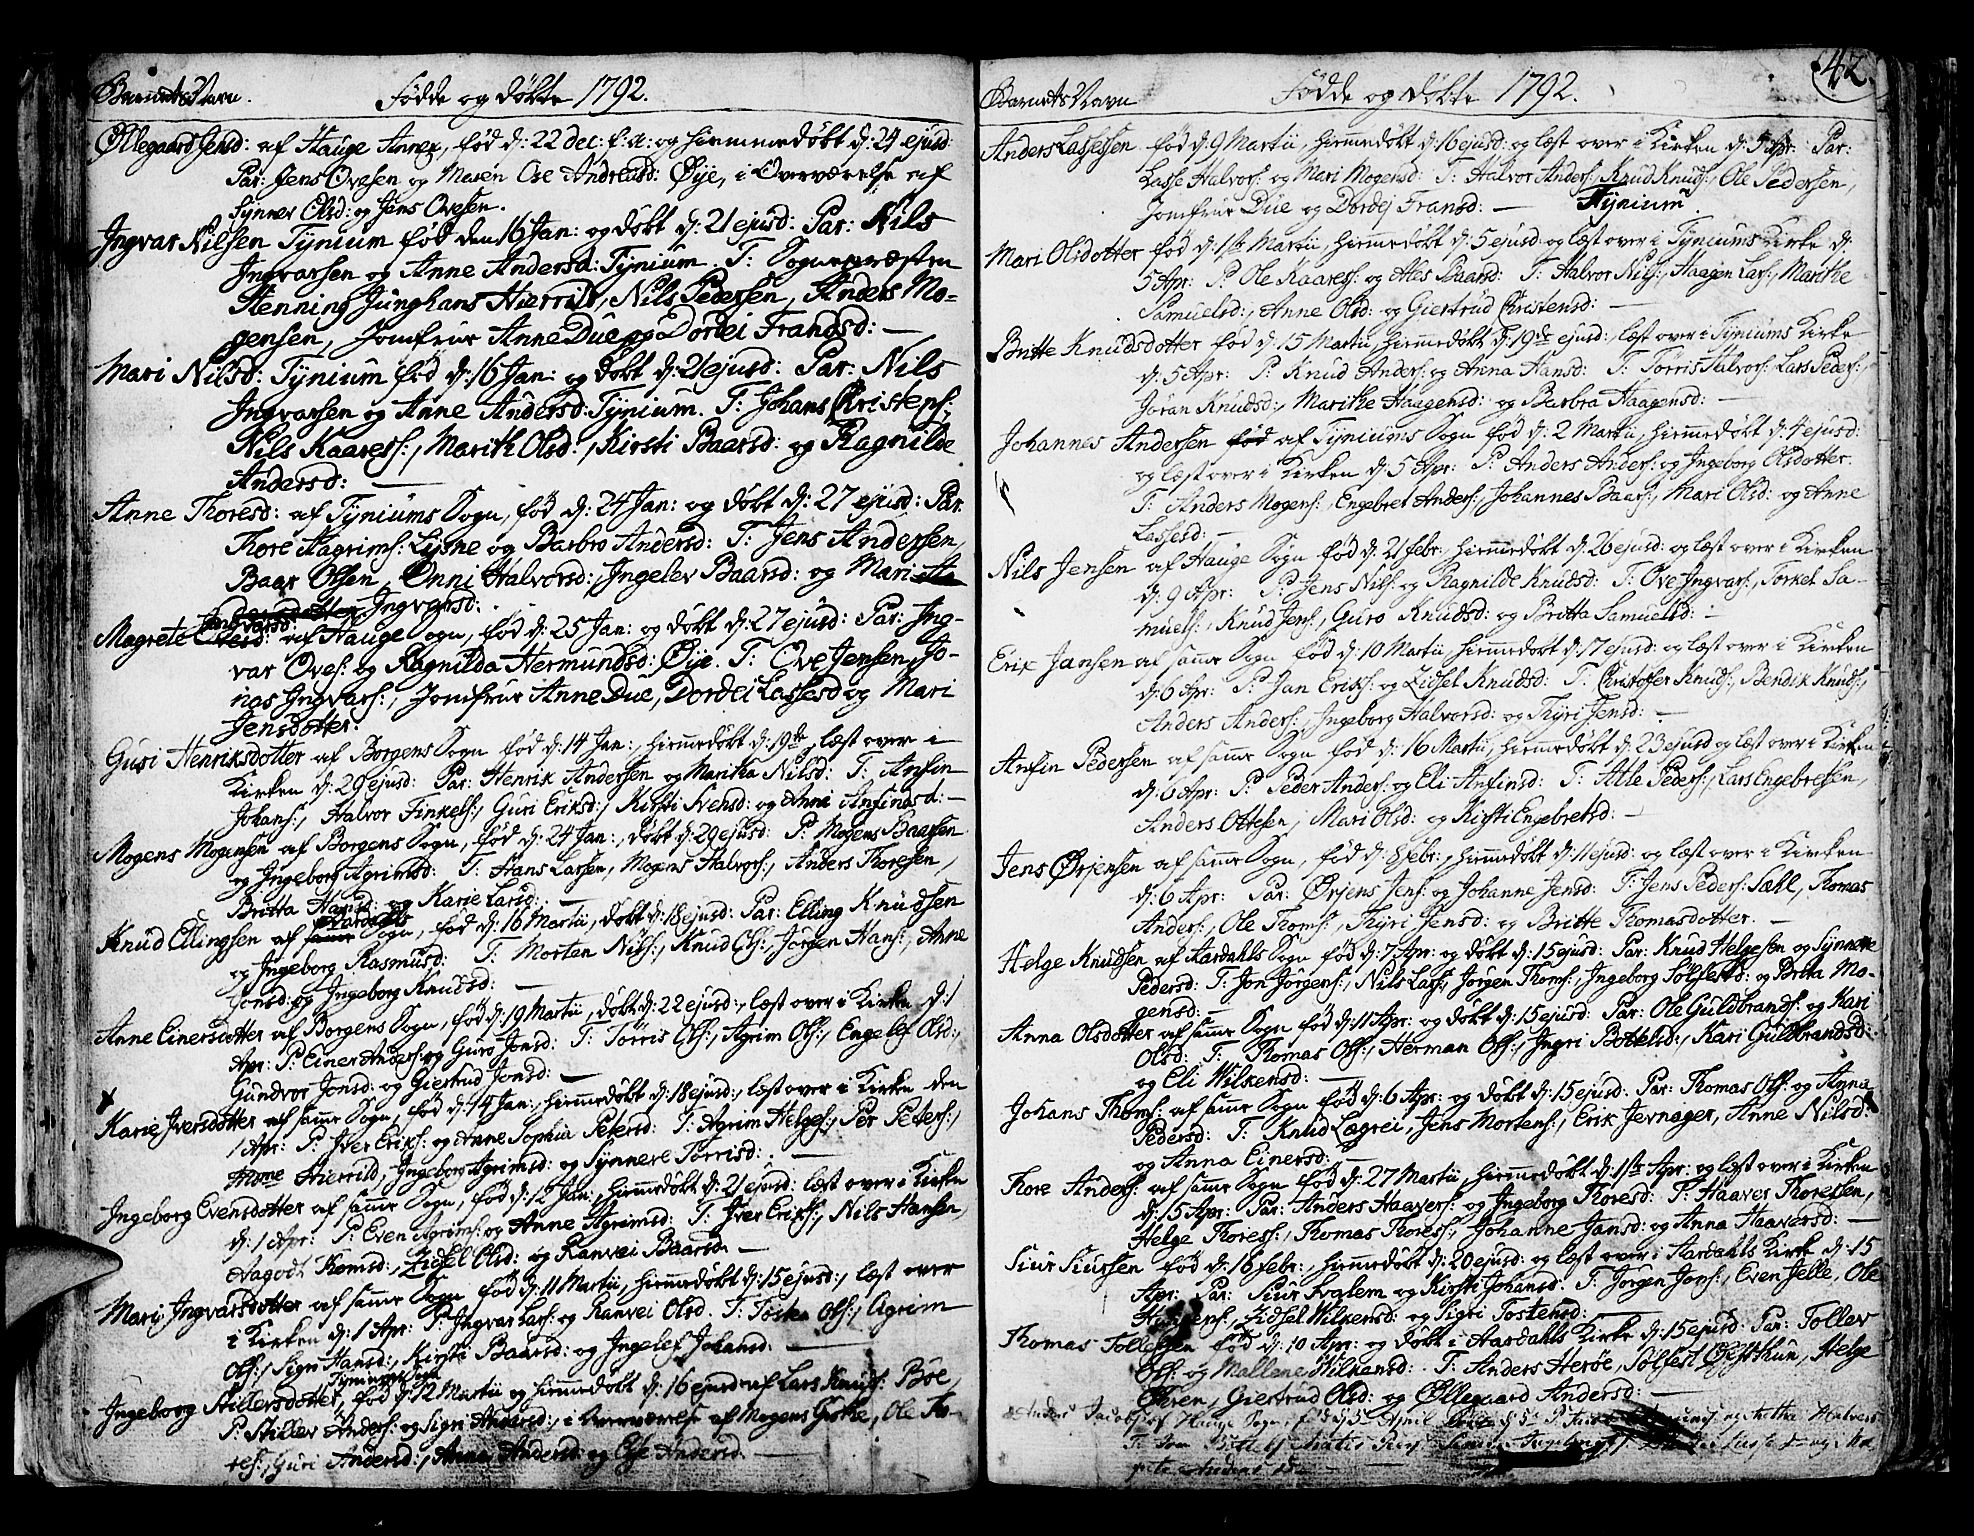 Barnets Navn. Fødde og døbte 1792.
Øllegaard Jensd: af Hauge Annex, fød d: 22 dec: f: a: og hiemmedøbt d: 24 ejusd:
Par: Jens Ovesen og Maren Ose Andreasd: Øÿe, i Overværelse af
Synnev Olsd: og Jens Ovesen.
Ingvar Nilsen Tÿnium fød den 16 Jan: og døbt d: 21 ejusd: Par: Nils
Ingvarsen og Anne Andersd: Tÿnium. T: Sognepræsten
Henning Junghans Hierrild, Nils Pedersen, Anders Mo-
gensen, Jomfrue Anne Due og Dordei Fransd: —
Mari Nilsd: Tÿnium fød d: 16 Jan: og døbt d: 21 ejusd: Par: Nils
Ingvarsen og Anne Andersd: Tÿnium. T: Johans Christens:,
Nils Kaares:, Marith Olsd:, Kirsti Baarsd: og Ragnilde
Andersd: —
Anne Thoresd: af Tÿniums Sogn, fød d: 24 Jan: og døbt d: 27 ejusd: Par:
Thore Aagrims: Lysne og Barbro Andersd: T: Jens Andersen,
Baar Olsen, Onni Halvorsd:, Ingelev Baarsd: og Mari
Ingvarsd:
Magrete Ingvarsd: af Hauge Sogn, fød d: 25 Jan: og døbt d: 27 ejusd: Par: Ing-
var Oves: og Ragnilda Hermundsd: Øÿe. T: Ove Jensen, Jo-
nas Ingvars:, Jomfrue Anne Due, Dordei Lassesd og Mari
Jensdotter.
Guri Henriksdotter af Borgens Sogn fød d: 14 Jan:, hiemmedøbt d: 19de, læst over i
Kirken d: 29 ejusd: Par: Henrik Andersen og Maritha Nilsd: T: Anfin
Johans:, Halvor Finkels:, Guri Eriksd:, Kirsti Svensd: og Anni Anfinsd: —
Mogens Mogensen af Borgens Sogn, fød d: 24 Jan:, døbt d: 29 ejusd: P: Mogens Baarsen
og Ingeborg Agrimsd: T: Hans Larsen, Mogens Halvors:, Anders Thoresen,
Britta Hansd: og Karie Larsd: —
Knud Ellingsen af Aardahls Sogn, fød d: 16 Martii, døbt d: 18 ejusd: Par: Elling Knudsen
og Ingeborg Rasmusd: T: Morten Nils:, Knud Ols:, Jørgen Hans:, Anne
Jonsd: og Ingeborg Knudsd: —
Anne Einersdotter af Borgens Sogn, fød d: 19 Martii, døbt d: 22 ejusd:, læst over i Kirken d: 1
Apr: P: Einer Anders: og Guro Jonsd: T: Torris Ols:, Agrim Ols:, Engelef Olsd:,
Gundvor Jonsd: og Giertrud Jonsd: —
Karie Iversdotter af samme Sogn, fød d: 14 Jan:, hiemmedøbt d: 18 ejusd:, læst over i Kirken den
1 Apr: P: Iver Eriks: og Anne Sophia Petersd: T: Agrim Helges:, Per Peders:,
Hierrild, Ingeborg Agrimsd: og Synneve Torrisd: —
Ingeborg Evensdotter af samme Sogn, fød d: 12 Jan:, hiemmedøbt d: 21 ejusd: læst over i Kirken
d: 1 Apr: P: Even Agrims: og Anne Agrimsd: T: Iver Eriks:, Nils Hansen,
Aagodt Thomsd:, Zidsel Olsd: og Ranvei Baarsd: —
Mari Ingvarsdotter af samme Sogn fød d: 11 Martii, hiemmedøbt d: 15 ejusd:, læst over
i Kirken d: 1 Apr: P: Ingvar Lars: og Ranvei Olsd: T: Tosten Ols:, Agrim
Ols:, Sigri Hansd:, Kirsti Baarsd: og Ingelef Johansd: —
Ingeborg Stillersdotter, Tÿniums Sogn fød d: 12 Martii og hiemmedøbt d: 16 ejusd af Lars Knuds: Bøe,
P: Stiller Anders: og Sigri Andersd:, i Overværelse af Mogens Grothe, Ole To-
res:, Guri Andersd:, Anna Andersd: og Else Andersd: —
42.
Barnets Navn Fødde og døbte 1792.
Anders Lassessen fød d: 9 Martii, hiemmedøbt d: 16 ejusd: og læst over i Kirken d: 5 Apr: Par:
Lasse Halvors: og Mari Mogensd: T: Halvor Anders:, Knud Knuds:, Ole Pedersen,
Jomfrue Due og Dordej Fransd: — Tÿnium.
Mari Olsdotter fød d: 1ste Martii, hiemmedøbt d: 5 ejusd og læst over i Tÿniums Kirke d:
5 Apr: P: Ole Kaares: og Ales Baarsd: T: Halvor Nils:, Haagen Lars:, Marithe
Samuelsd:, Anne Olsd: og Giertrud Christensd: —
Britte Knudsdotter fød d: 15 Martii, hiemmedøbt d: 19de ejusd: læst over i Tÿniums Kirke
d: 5 Apr: P: Knud Anders: og Anna Hansd: T: Torris Halvors:, Lars Peders:,
Jøran Knudsd:, Marithe Haagensd: og Barbra Haagensd: —
Johannes Andersen af Tÿniums Sogn fød d: 2 Martii, hiemmedøbt d: 4 ejusd:
og læst over i Kirken d: 5 Apr: P: Anders Anders: og Ingeborg Olsdotter.
T: Anders Mogens:, Engebret Anders:, Johannes Baars:, Mari Olsd: og Anne
Lassesd: —
Nils Jensen af Hauge Sogn fød d: 21 febr:, hiemmedøbt d: 26 ejusd: og læst over i Kirken
d: 9 Apr: P: Jens Nils: og Ragnilde Knudsd: T: Ove Ingvars:, Torkel Sa-
muels:, Knud Jens:, Guro Knudsd: og Britta Samuelsd: —
Erik Jansen af samme Sogn fød d: 10 Martii, hiemmedøbt d: 17 ejusd: og læst over i Kirken
d: 6 Apr: P: Jan Eriks: og Zidsel Knudsd: T: Christofer Knuds:, Bendik Knuds:,
Anders Anders:, Ingeborg Halvorsd: og Thyri Jensd: —
Anfin Pedersen af samme Sogn fød d: 16 Martii, hiemmedøbt d: 23 ejusd og læst over i Kirken
d: 6 Apr: P: Peder Anders: og Eli Anfinsd: T: Atle Peders:, Lars Engebretsen,
Anders Ottesen, Mari Olsd: og Kirsti Engebretsd: —
Jens Ørjensen af samme Sogn, fød d: 8 febr:, hiemmedøbt d: 11 ejusd: og læst over i Kirken
d: 6 Apr: Par: Ørjens Jens: og Johanne Jensd: T: Jens Peders: Sæhl, Thomas
Anders:, Ole Thoms:, Thyri Jensd: og Britte Thomasdotter. —
Helge Knudsen af Aardahls Sogn fød d: 7 Apr: og døbt d: 15 ejusd: Par: Knud Helgesen og Synneve
Pedersd: T: Jon Jørgens:, Nils Lars:, Jørgen Thoms:, Ingeborg Sølfestsd: og Brita Mo-
gensd: —
Anna Olsdotter af samme Sogn fød d: 11 Apr: og døbt d: 15 ejusd: Par: Ole Guldbrands: og Kari
Olsd: T: Thomas Ols:, Herman Ols:, Ingri Bottelsd:, Kari Guldbrandsd:
og Eli Wilkensd: —
Johans Thoms: af samme Sogn fød d: 6 Apr: og døbt d: 15 ejusd: Par: Thomas Ols: og Anna
Pedersd: T: Knud Lægrei, Jens Mortens:, Erik Jernager, Anne Nilsd:
og Anna Einersd: —
Thore Anders: af samme Sogn fød d: 27 Martii, hiemmedøbt d: 1ste Apr: og læst over i Kirken
d: 15 Apr: Par: Anders Haavers: og Ingeborg Thoresd: T: Haaver Thoresen,
Helge Thores:, Thomas Thores:, Johanne Jansd: og Anna Haaversd: —
Siur Siursen fød d: 16 febr:, hiemmedøbt d: 20 ejusd: og læst over i Aardahls Kirke d: 15
Apr: Par: Siur Svalem og Kirsti Johansd: T: Jørgen Jons:, Even Jelle, Ole
Zidsel Wilkensd: og Sigri Tostensd:
Thomas Follefsen fød d: 10 Apr: og døbt i Aardahls Kirke d: 15 ejusd: Par: Follev
Ols: og Mallene Wilkensd: T: Anders Herøe, Sølfest Øisthun, Helge
Giertrud Olsd: og Øllegaard Andersd: —
Anders Jacobs: af Hauge Sogn, fød d: 5 April